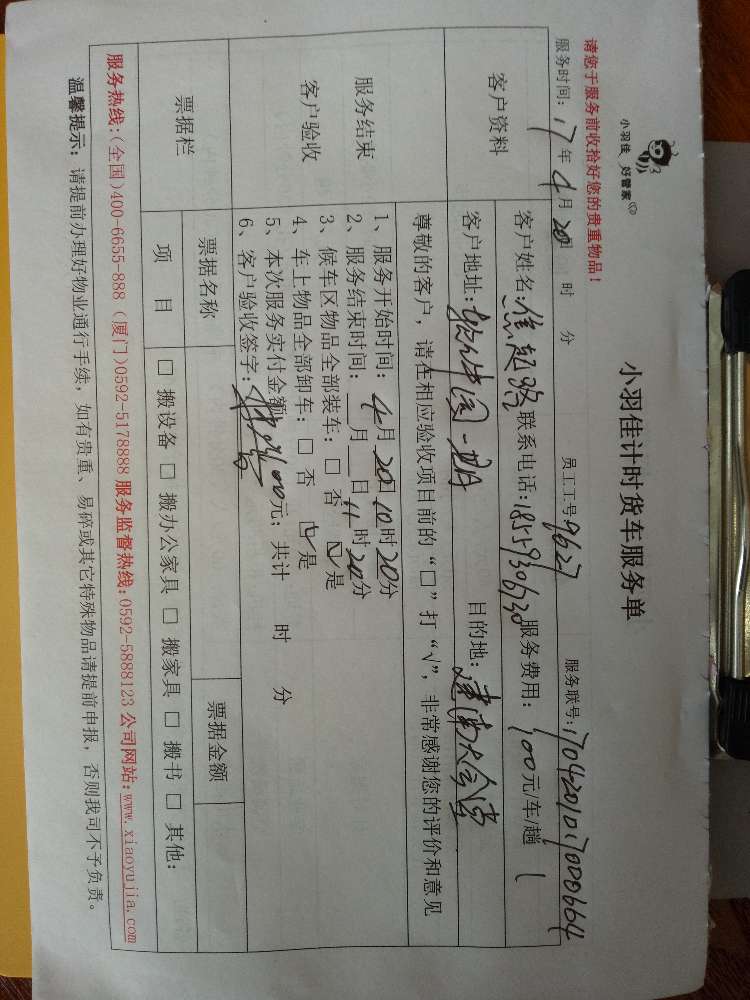 小羽佳 好管家
小羽佳计时货车服务单
请您于服务前收拾好您的贵重物品！
服务时间：17年4月20日 时 分 员工工号9627 服务联号：170420101700664
客户资料
客户姓名： 联系电话：18559306730服务费用：100元/车/趟
客户地址： 目的地：
服务结束
客户验收
尊敬的客户，请在相应验收项目前的“□”打“√”，非常感谢您的评价和意见
1、服务开始时间：4月20日10时20分
2、服务结束时间： 月 日11时20分
3、候车区物品全部装车：□ 否 ☑是
4、车上物品全部卸车：□ 否 ☑是
5、本次服务实付金额：100元；共计 时 分
6、客户验收签字：
票据栏
票据名称 票据金额
项 目 □ 搬设备 □ 搬办公家具 □ 搬家具 □ 搬书 □ 其他：
服务热线：(全国)400-6655-888（厦门)0592-5178888 服务监督热线：0592-5888123 公司网站：www.xiaoyujia.com
温馨提示：请提前办理好物业通行手续，如有贵重、易碎或其它特殊物品请提前申报，否则我司不予负责。